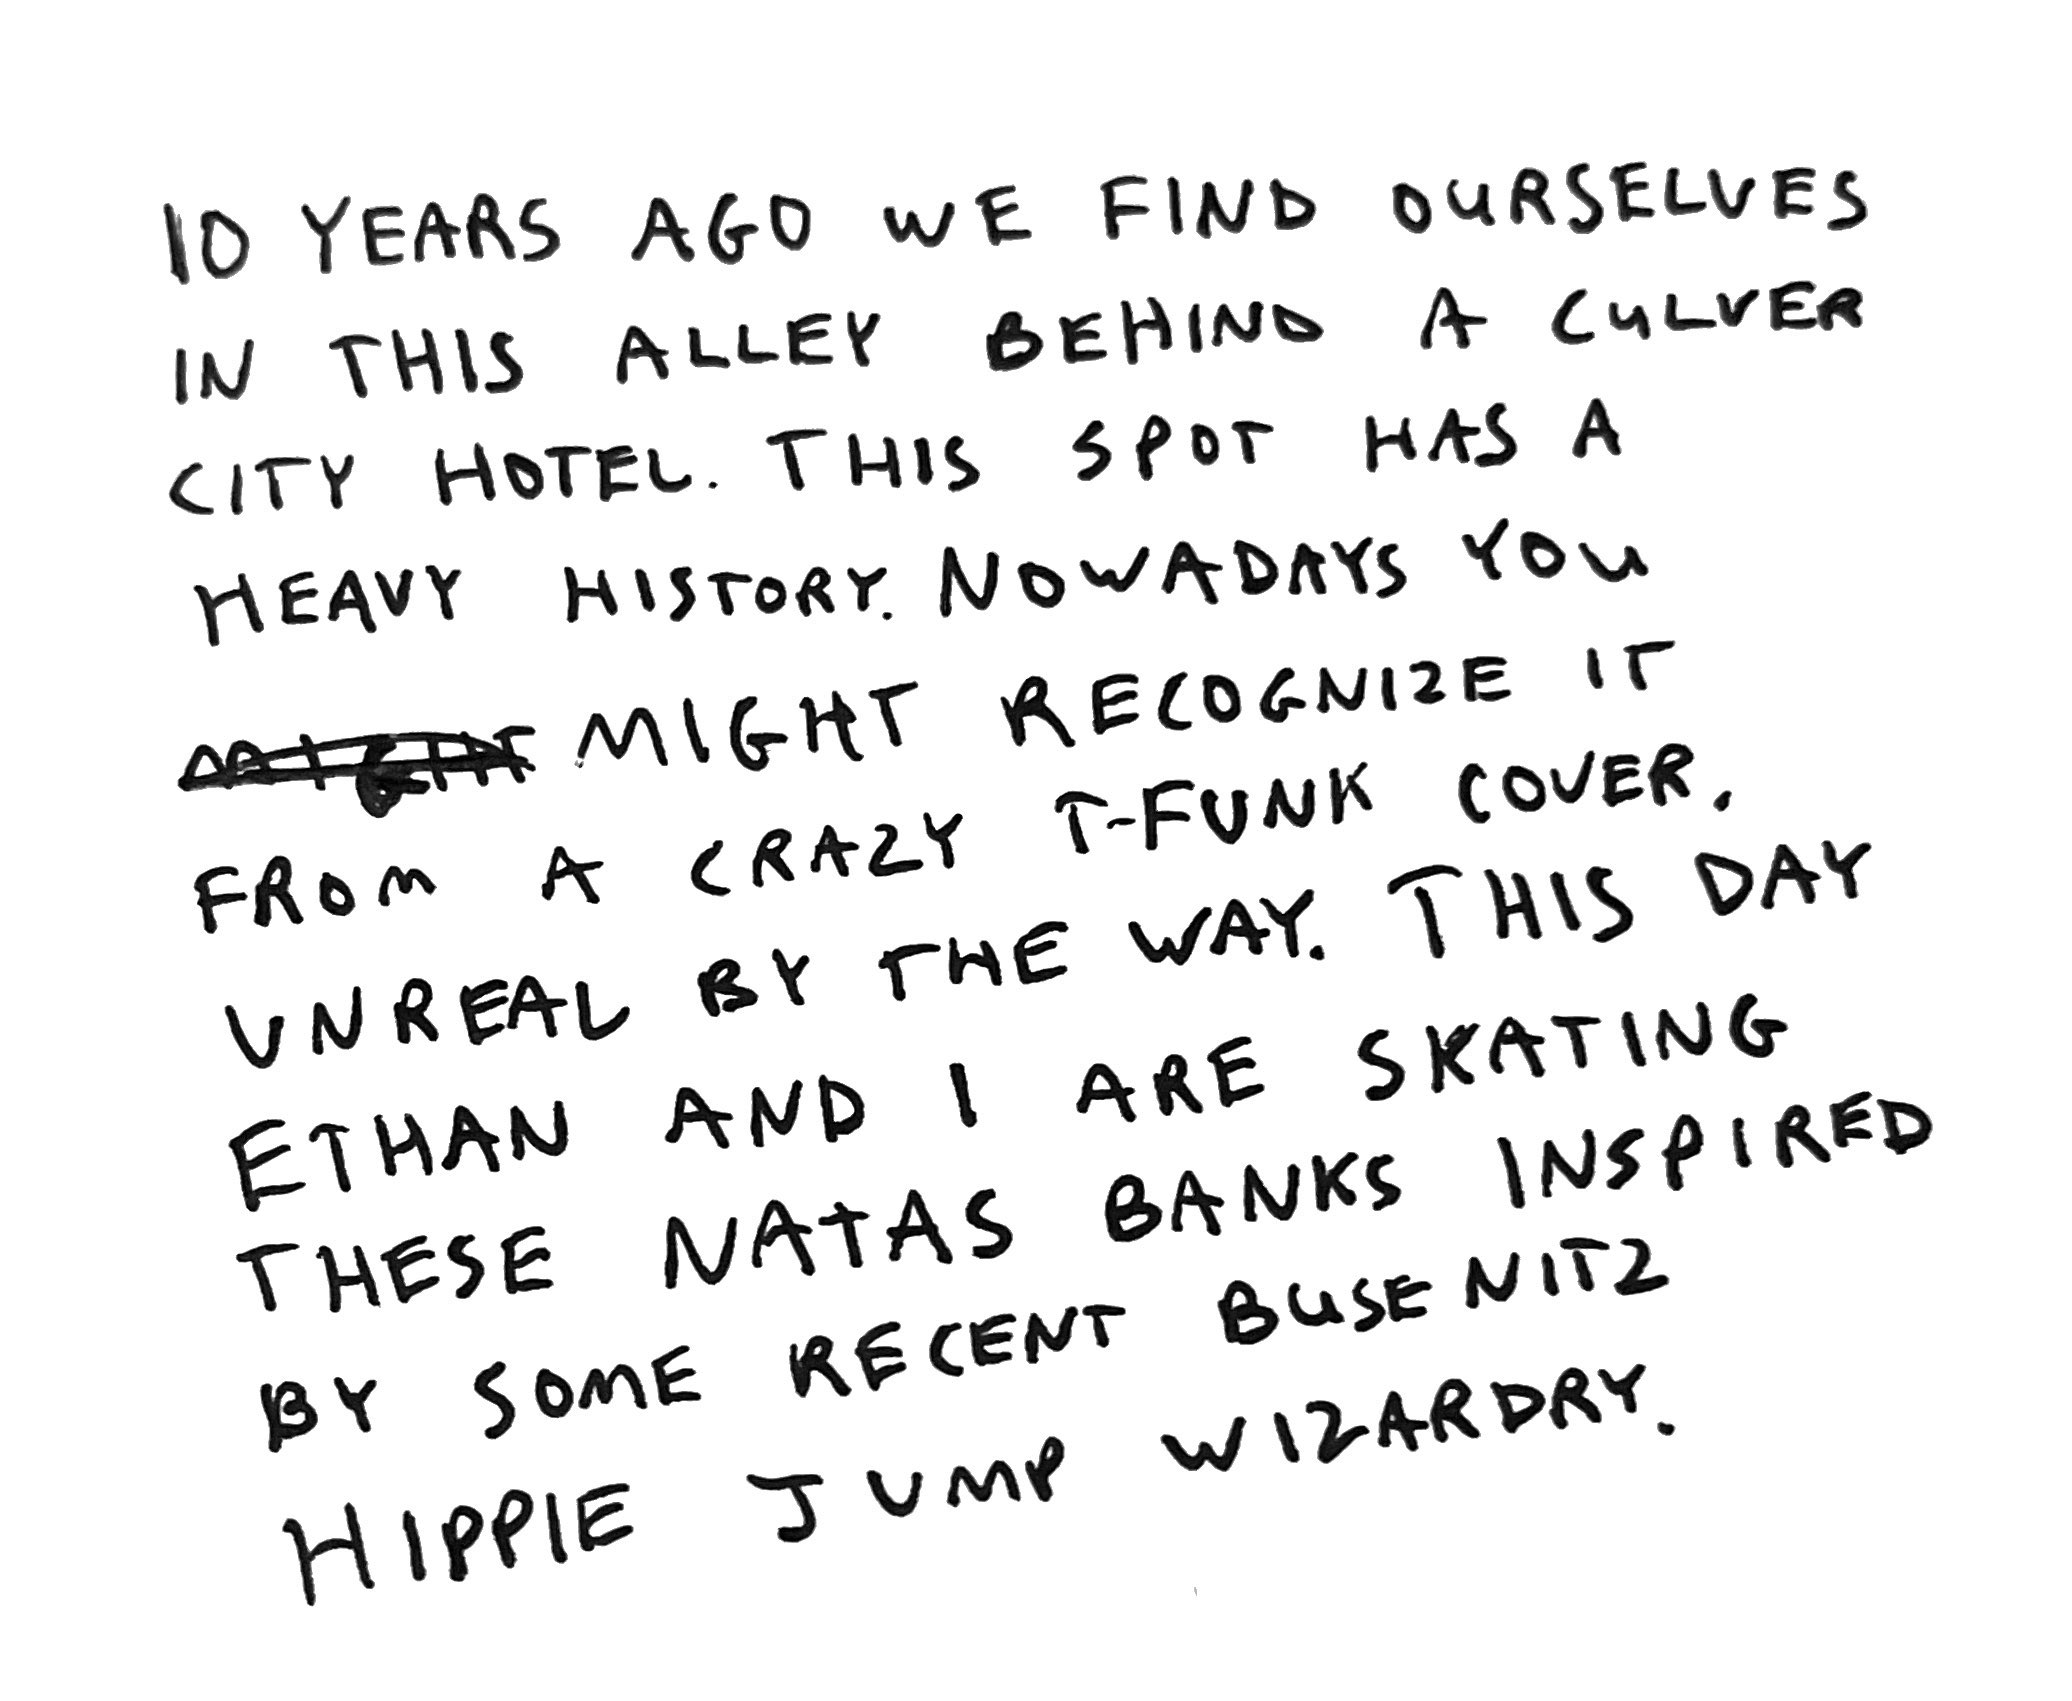 10 YEARS AGO WE FIND OURSELVES
IN THIS ALLEY BEHIND A CULVER
CITY HOTEL. THIS SPOT HAS A
HEAVY HISTORY. NOWADAYS YOU
MIGHT RECOGNIZE IT
FROM A CRAZY T-FUNK COVER.
UNREAL BY THE WAY. THIS DAY
ETHAN AND I ARE SKATING
THESE NATAS BANKS INSPIRED
BY SOME RECENT BUSENITZ
HIPPIE JUMP WIZARDRY.